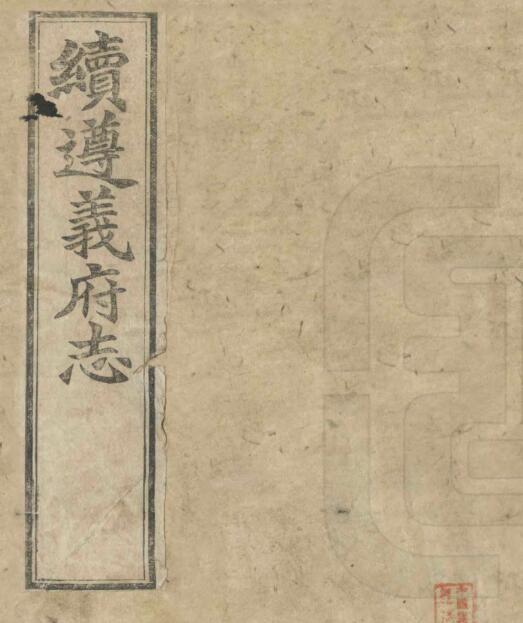 續遵義府志